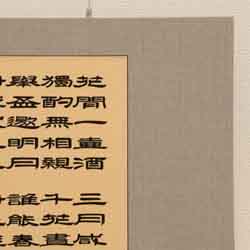 花間一壺酒 三月咸
獨酌無相親 千花晝
舉盃邀明月 誰能春